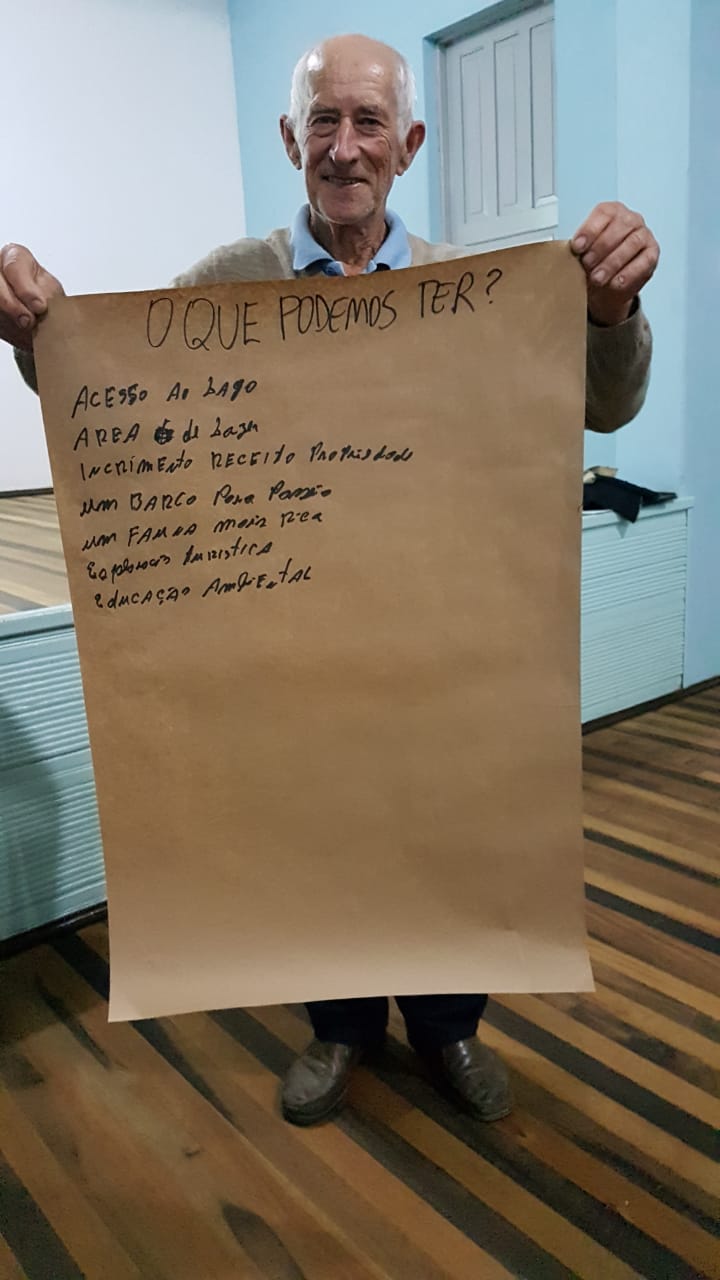 O QUE PODEMOS TER?
ACESSO AO LAGO
AREA de Lazer
INCRIMENTO RECEITO PROPRIEDADE
um BARCO Para Passeio
um FAUNA mais Rica
Explorass turistica
EDUCAÇÃO AMBIENTAL